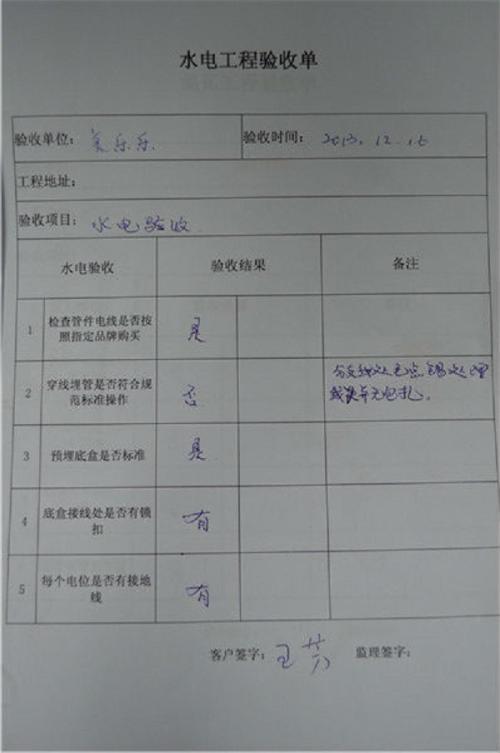 水电工程验收单
验收单位：美乐乐 验收时间：2013.12.16
工程地址：
验收项目：水电验收
水电验收 验收结果 备注
1 检查管件电线是否按 是
照指定品牌购买
2 穿线埋管是否符合规 否
范标准操作
处理
3 预埋底盒是否标准 是
4 底盒接线处是否有锁 有
扣
5 每个电位是否有接地 有
线
客户签字： 王芬 监理签字：